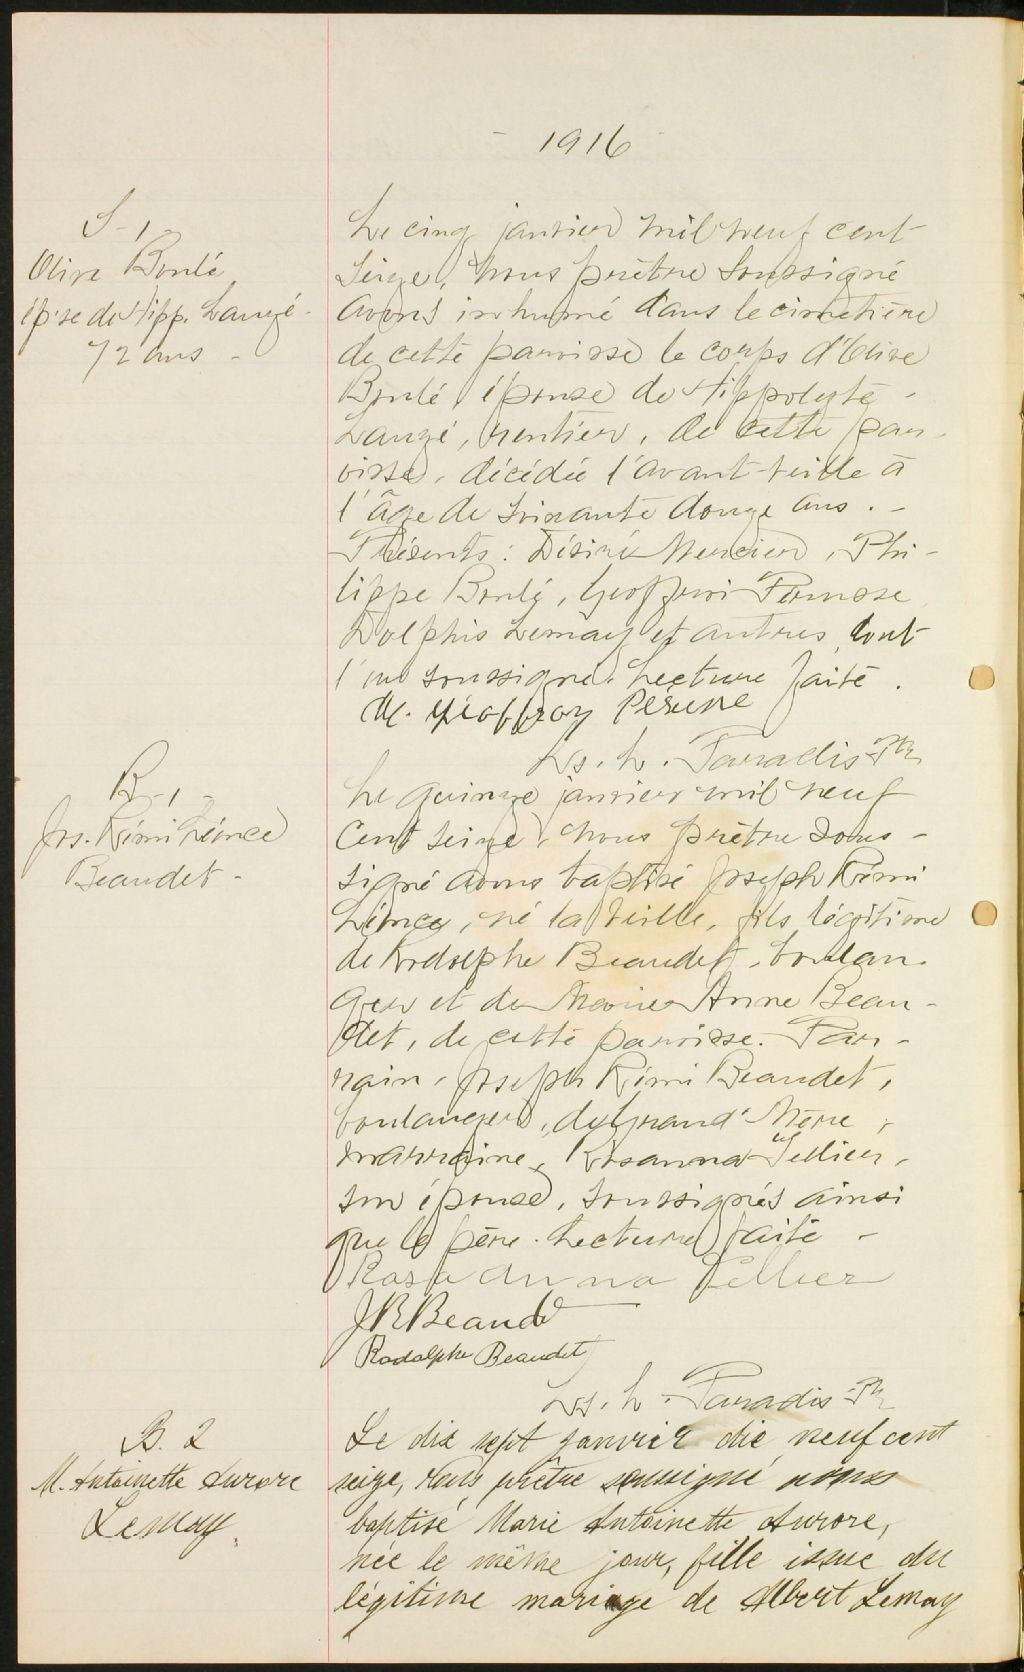 - 1916
S - 1
Olive Boulé
ép'se de Hipp. Lauzé -
72 ans -
Le cinq janvier mil neuf cent
seize, nous prêtre soussigné
avons inhumé dans le cimetière
de cette paroisse le corps d'Olive
Boulé, épouse de Hippolyte
Lauzé, rentier, de cette par-
oisse, décédée l'avant-veille à
l'âge de soixante douze ans. -
Présents: Désiré Mercier, Phi-
lippe Boulé, Geoffroi Perusse
Dolphis Lemay et autres, dont
l'un soussigné. Lecture faite.
M. Géoffroy Pérusse
Ls. L. Paradis Ptre
B - 1 -
Jos. Rémi Léonce
Beaudet -
Le quinze janvier mil neuf
cent seize, nous prêtre sous-
signé avons baptisé Joseph Rémi
Léonce, né la veille, fils légitime
de Rodolphe Beaudet, boulan-
ger et de Marie Anne Beau-
det, de cette paroisse. Par-
rain, Joseph Rémi Beaudet,
boulanger, de Grand'Mère,
marraine, Rosanna Tellier,
son épouse, soussignés ainsi
que le père. Lecture faite -
Rosa Anna Tellier
J R Beaudet
Rodolphe Beaudet
Ls. L. Paradis Ptre
B. 2
M. Antoinette Aurore
Lemay
Le dix sept janvier dix neuf cent
seize, nous prêtre soussigné avons
baptisé Marie Antoinette Aurore,
née le même jour, fille issue du
légitime mariage de Albert Lemay